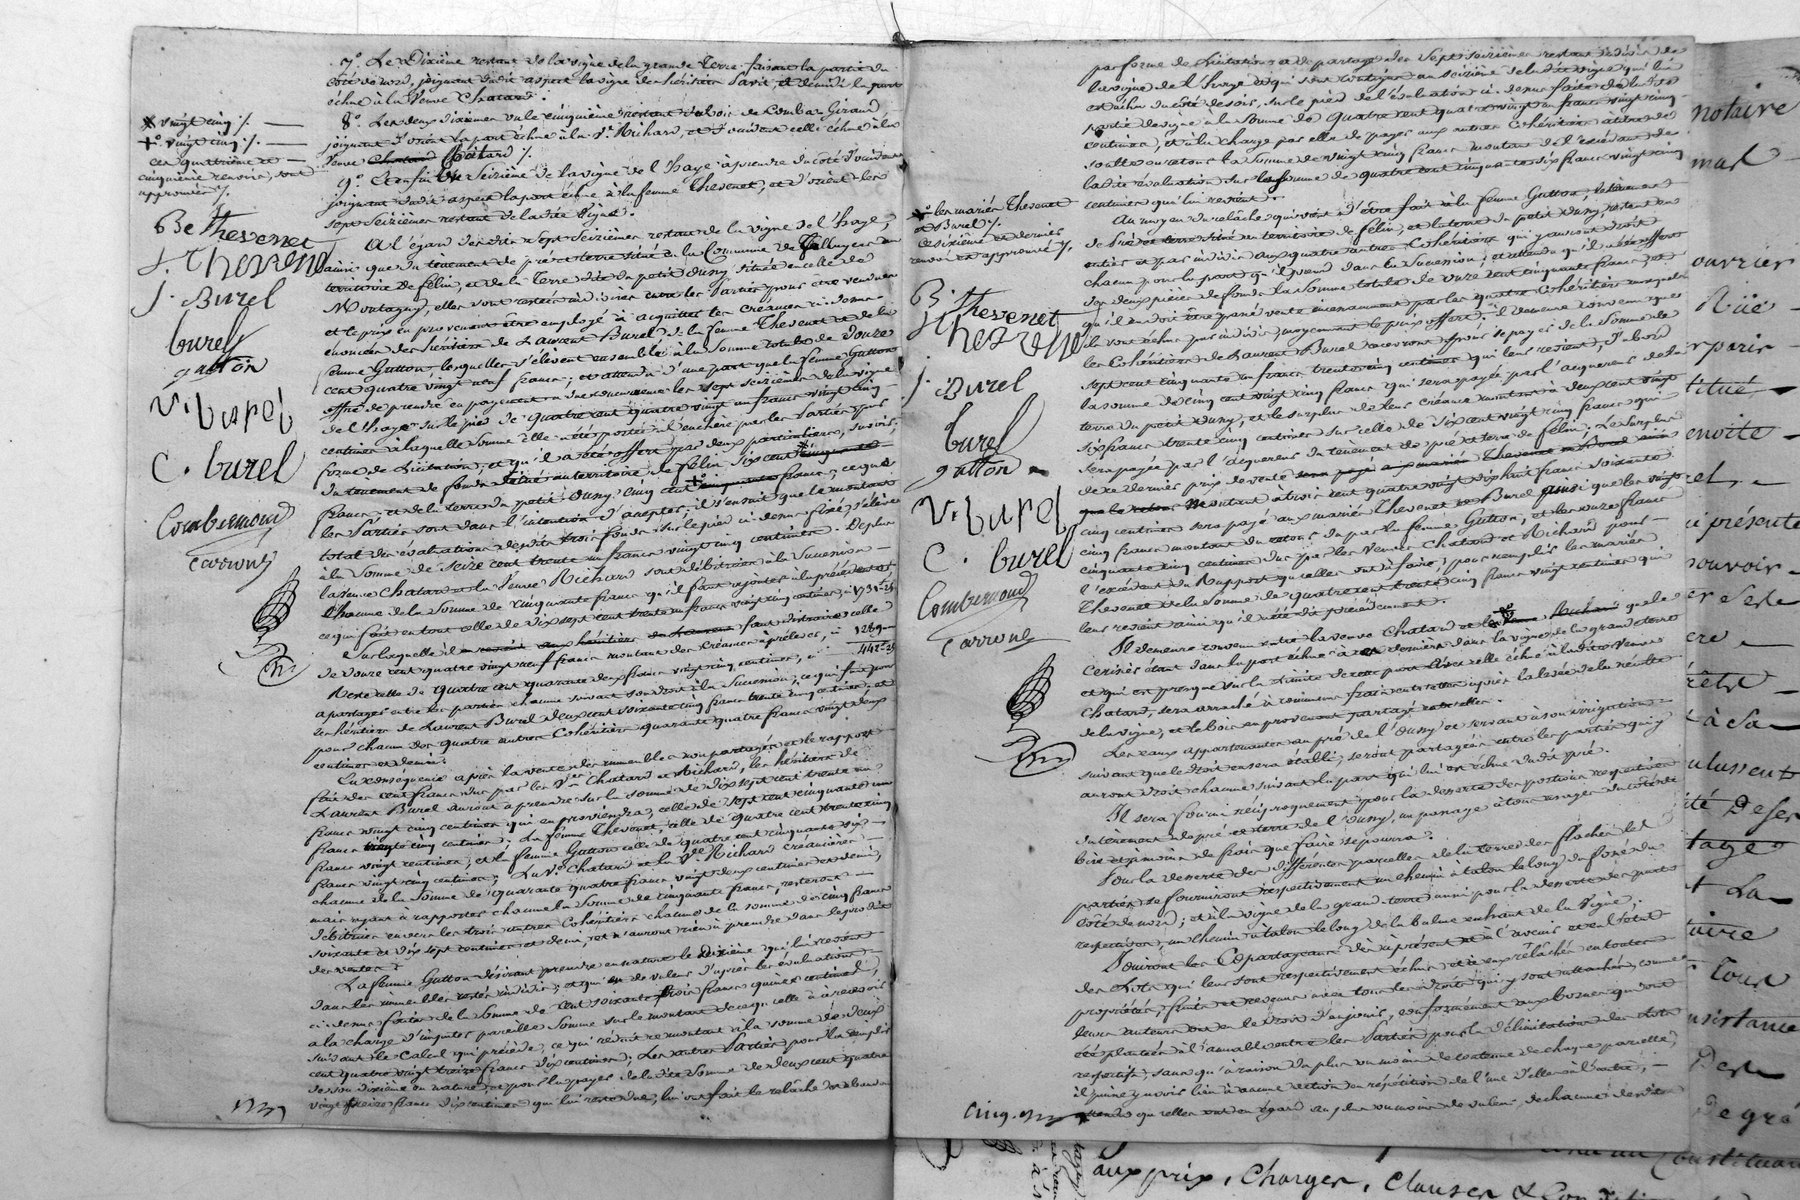 7°. Le Dixième restant de la vigne de la grande Terre faisant la partie du
côté de nord, joignant dudit aspect la vigne des héritiers et de midi la part
échue à la Veuve Chatard.
8°. Les deux dixièmes un cinquième restant du bois de Combat Giraud,
joignant d'orient la part échue à la Ve. Richard, et d'occident celle échue à la
Veuve Chatard ./.
9°. Et enfin un seizième de la vigne de l'haye à prendre du côté d'occident
joignant dudit aspect la part échue à la femme Thevenet, et d'orient les
sept seizièmes restant de ladite vigne.
A l'égard desdits sept seizièmes restant de la vigne de l'haye,
ainsi que du tènement de pré et terre situé en la Commune de
territoire de félin, et de la Terre dite du petit dusy située en celle de
Montagny, elles vont rester indivises entre les Parties pour être vendues
et le prix en provenant être employé à acquitter les créances ci-dessus
énoncées des héritiers de Laurent Burel de la femme Thevenet et de la
femme Gutton, lesquelles s'élèvent ensemble à la somme totale de douze
cent quatre vingt neuf francs; et attendu d'une part que la femme Gutton
offre de prendre en payement les sept seizièmes de la vigne
de l'haye sur le pied de quatre cent quatre vingt un francs vingt cinq
centimes à laquelle somme elle a été portée à l'enchère par les Parties par
forme de Licitation, et qu'il a été offert par deux particuliers, savoir:
du tènement de fonds situé au territoire de félin, six cent
francs, et de la terre du petit dusy, cinq cent francs, ce que
les Parties sont dans l'intention d'accepter; il s'ensuit que le montant
total des évaluations desdits trois fonds sur le pied ci-dessus fixé, s'élève
à la Somme de seize cent trente un francs vingt cinq centimes. De plus
la veuve Chatard et la Veuve Richard sont débitrices à la Succession
chacune de la somme de cinquante francs qu'il faut rejouter à la précédente
ce qui fait en tout celle de dix sept cent trente un francs vingt cinq centimes, ci 1731-25
Sur laquelle il faut distraire celle
de douze cent quatre vingt neuf francs montant des créances à prélever, ci 1289-
Reste celle de quatre cent quarante deux francs vingt cinq centimes, ci 442-25
à partager entre les parties chacune suivant son droit à la Succession, ce qui fait pour
les héritiers de Laurent Burel deux cent soixante cinq francs trente cinq centimes, et
pour chacun des quatre autres Cohéritiers quarante quatre francs vingt deux
centimes et demi.
En conséquence après la vente des immeubles non partagés et le rapport
fait des cent francs dus par les Ves. Chatard et Richard, les héritiers de
Laurent Burel auront à prendre sur la somme de dix sept cent trente un
francs vingt cinq centimes qui en proviendra, celle de sept cent cinquante un
francs trente cinq centimes; la femme Thevenet, celle de quatre cent trente cinq
francs vingt centimes; et la femme Gutton celle de quatre cent cinquante six
francs vingt cinq centimes; La Ve. Chatard et la Ve. Richard créancières
chacune de la somme de quarante quatre francs vingt deux centimes et demi,
mais ayant à rapporter chacune la somme de cinquante francs, resteront
débitrices envers les trois autres Cohéritiers chacune de la somme de cinq francs
soixante et dix sept centimes et demi, et n'auront rien à prendre dans le produit
des ventes.
La femme Gutton désirant prendre en nature le dixième qui lui revient
dans les immeubles restés indivis, et qui est de valeur d'après les évaluations
ci-dessus faites de la somme de cent soixante trois francs quinze centimes,
à la charge d'imputer pareille somme sur le montant de ce qu'elle a à recevoir
suivant le Calcul qui précède, ce qui réduit ce montant à la somme de deux
cent quatre vingt treize francs dix centimes, Les autres Parties pour la remplir
de son dixième en nature, et pour la payer de ladite somme de deux cent quatre
vingt treize francs dix centimes qui lui reste due, lui ont fait le relâche et abandon
✕ vingt cinq ./.
+° vingt cinq ./.
ces quatrième et
cinquième renvois, sont
approuvés ./.
B Thevenet
J. Thevenet
J. Burel
burel
gutton
V. burel
C. burel
Combernoud
Carron
par forme de Licitation et de partage des Sept seizièmes restant indivis de
la vigne de l'haye et qui sont contigus au seizième de ladite vigne qui lui
est échu du côté de soir, sur le pied de l'évaluation ci-dessus faite de ladite
partie de vigne à la Somme de quatre cent quatre vingt un francs vingt cinq
centimes, et à la charge par elle de payer aux autres Cohéritiers à titre de
soulte ou retour la somme de vingt cinq francs montant de l'excédent de
ladite évaluation sur la somme de quatre cent cinquante six francs vingt cinq
centimes qui lui revient.
Au moyen du relâche qui vient d'être fait à la femme Gutton, le tènement
de pré et terre situé au territoire de félin, et la terre du petit dusy, restent en
entier et par indivis aux quatre autres Cohéritiers qui y auront droit
chacun pour la part qu'il prend dans la Succession; et attendu qu'il a été offert
des deux pièces de fonds la somme totale de onze cent cinquante francs, et
qu'il en doit être passé vente incessamment par les quatre Cohéritiers auxquels
ils sont échus par indivis, moyennant le prix offert, il demeure convenu que
les Cohéritiers de Laurent Burel recevront pour se payer de la somme de
sept cent cinquante un francs trente cinq centimes qui leur revient, d'abord
la somme de cinq cent vingt cinq francs qui sera payée par l'acquéreur de la
terre du petit dusy, et le surplus de leur créance montant à deux cent vingt
six francs trente cinq centimes sur celle de six cent vingt cinq francs qui
sera payée par l'acquéreur du tènement de pré et terre de félin. Le Surplus
de ce dernier prix de vente
montant à trois cent quatre vingt dix huit francs soixante
cinq centimes sera payé aux mariés Thevenet et Burel ainsi que les vingt
cinq francs montant du retour dû par la femme Gutton, et les onze francs
cinquante cinq centimes dus par les Veuves Chatard et Richard pour
l'excédent du Rapport qu'elles ont à faire, pour remplir les mariés
Thevenet de la somme de quatre cent trente cinq francs vingt centimes qui
leur revient ainsi qu'il a été dit précédemment.
Il demeure convenu entre la veuve Chatard et que le
Cerisier étant dans la part échue à ces derniers dans la vigne de la grande terre
et qui est presque sur la limite de cette part avec celle échue à ladite Veuve
Chatard, sera arraché à communs frais entr'elles après la levée de la récolte
de la vigne; et le bois en provenant partagé entr'elles.
Les eaux appartenantes au pré de l'Ousy et servant à son irrigation
suivant que le droit en sera établi, seront partagées entre les parties qui y
auront droit chacune suivant la part qui lui est échue dudit pré.
Il sera fourni réciproquement pour la desserte des portions respectives
du tènement de pré et terre de l'Ousy, un passage à tous usages du côté de
bise et au moins de frais que faire se pourra.
Pour la desserte des différentes parcelles de la terre des flaches les
parties se fourniront respectivement un chemin à talon le long du fossé du
côté de nord; et à la vigne de la grand terre aussi pour la desserte des parts
respectives, un chemin à talon le long de la balme en haut de la Vigne.
Jouiront les Copartageans dès à présent et à l'avenir et en l'état
des Lots qui leur sont respectivement échus et ci-avant relâchés en toute
propriété, fruits et revenus avec tous les droits qui y sont attachés, comme
leurs auteurs ont eu le droit d'en jouir, conformément aux bornes qui ont
été plantées à l'amiable entre les Parties pour la délimitation des Lots
respectifs, sans qu'à raison du plus ou moins de contenue de chaque parcelle,
il puisse y avoir lieu à aucune action en répétition de l'une d'elles à l'autre,
attendu qu'elles ont eu égard au plus ou moins de valeur de chacune desdites
✕° les mariés Thevenet
et Burel ./.
ce sixième et dernier
renvoi est approuvé ./.
B. Thevenet
J. Thevenet
J. Burel
burel
gutton
V. burel
C. burel
Combernoud
Carron
notaire
mal
ouvrier
Rüe
paris
titué
envite
présente
pouvoir
à Sa
Deser
tage
La
Tour
De gré
aux prix, Charges, Clauses &